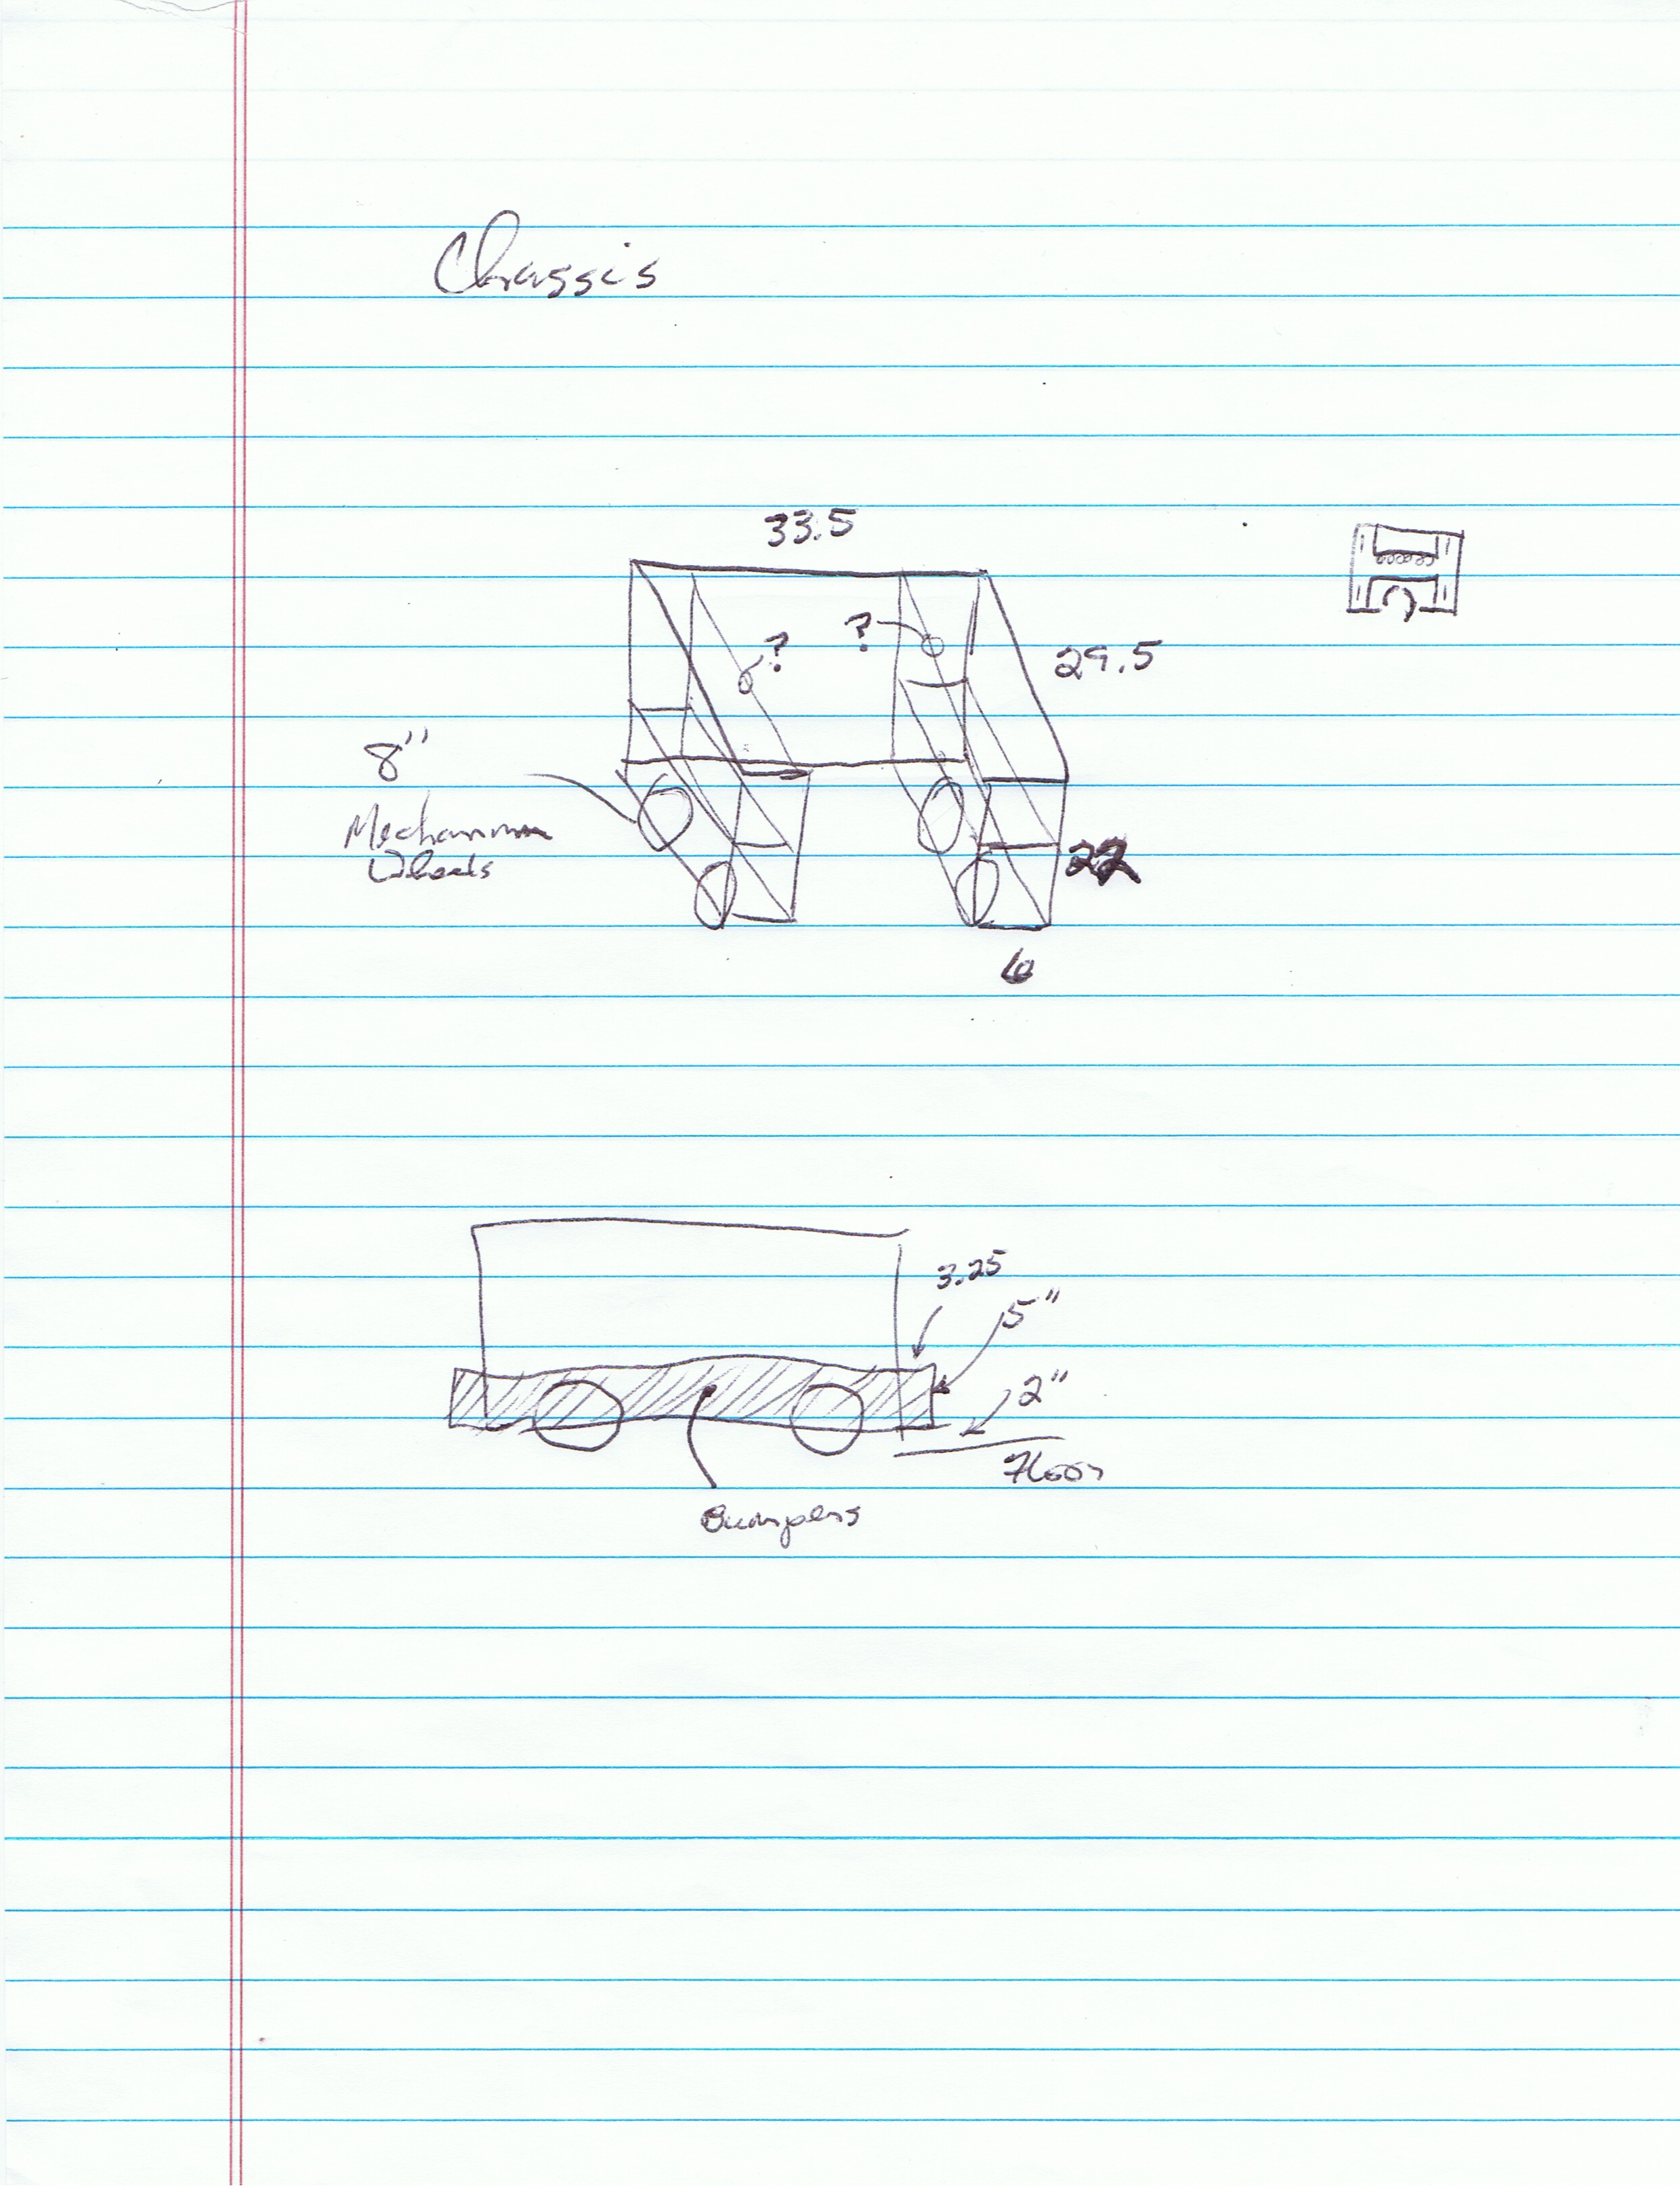 Chassis
33.5
?
?
29.5
8"
Mechanum
Wheels
22
6
3.25
5"
2"
Floor
Bumpers